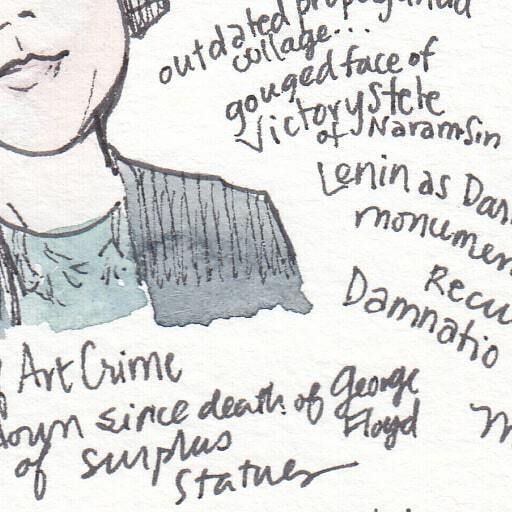 outdated propaganda
collage...
gouged face of
Victory Stele
of Naramsin
Lenin as
Damnatio
Art Crime
since death of George
Floyd
of surplus
Statues